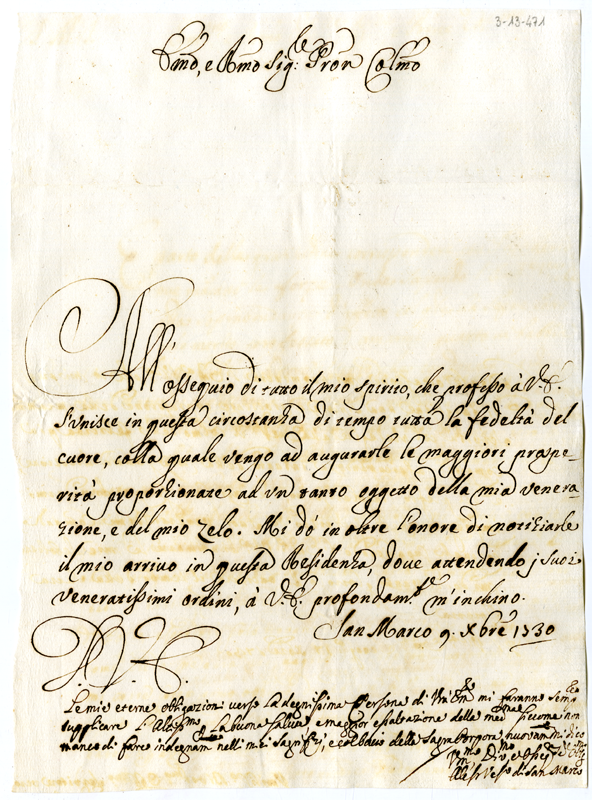 3-13-471
Emo, e Rmo Sig:le Pron Colmo
All'ossequio di tutto il mio spirito, che professo à V.E.
s'unisce in questa circostanza di tempo tutta la fedeltà del
cuore, colla quale vengo ad augurarle le maggiori prospe-
rità proporzionate ad un tanto oggetto della mia venera-
zione, e del mio zelo. Mi dó in oltre l'onore di notiziarle
il mio arrivo in questa Residenza, dove attendendo j suoi
veneratissimi ordini, à V.E. profondam.te m'inchino.
San Marco 9. Xbre 1730
D. V. E.
Le mie eterne obligazioni verso la degnissima Persona di mi faranno
supplicare l'Altissmo la buona salute e maggior esaltazione della med siccome non
manco di fare indegnam nell'i miei Sagrifizj, e col bacio della Sagra Porpora nuovam mi dico
Div. e
Vesco di San Marco